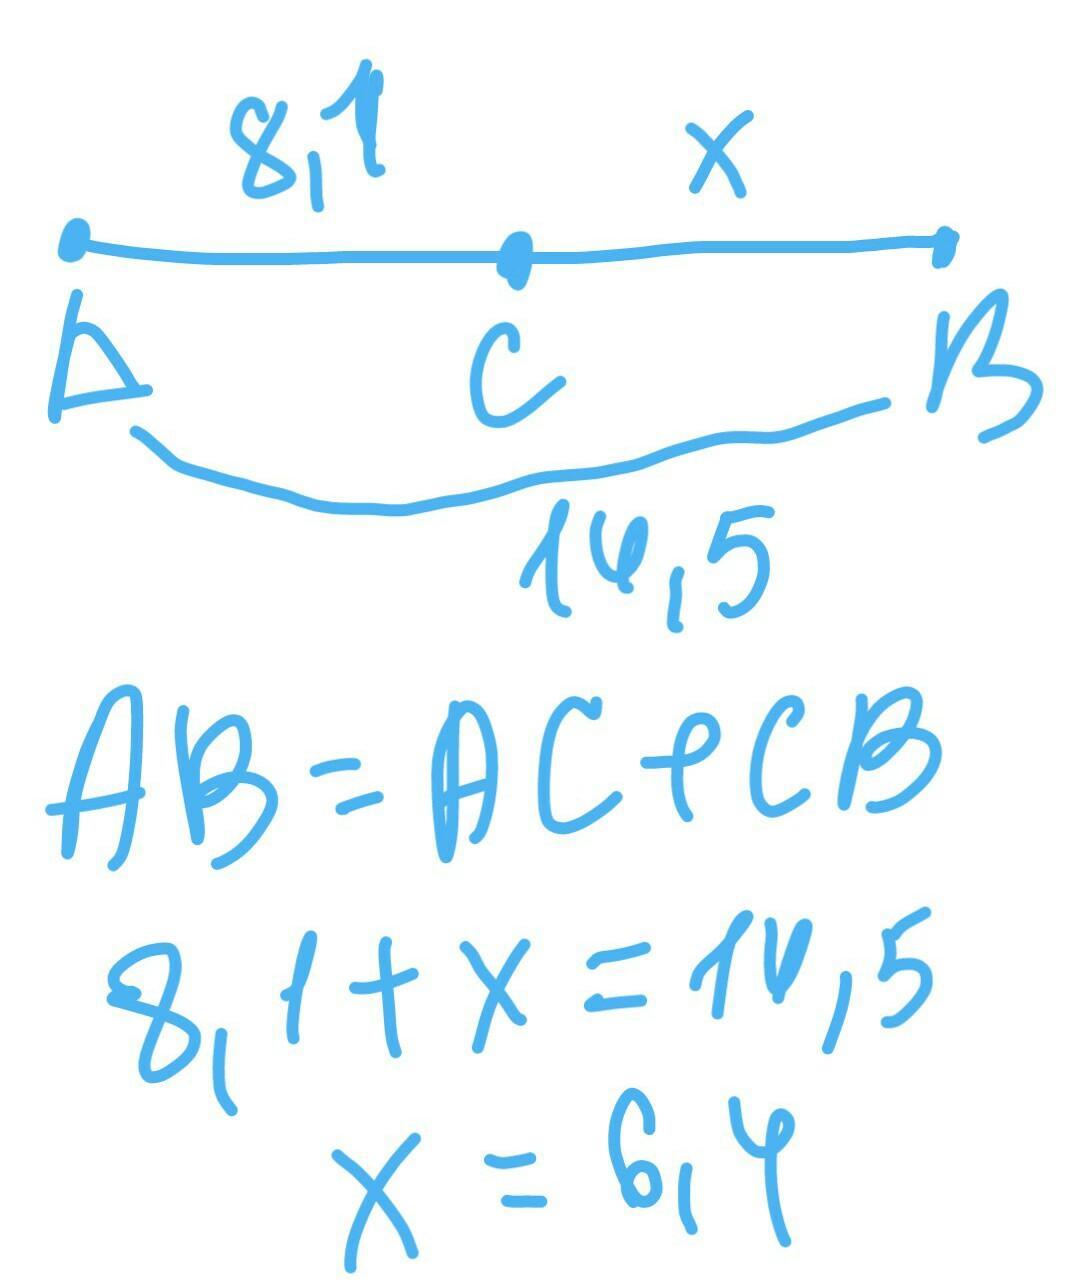 8,1 x
A C B
14,5
AB = AC + CB
8,1 + x = 14,5
x = 6,4